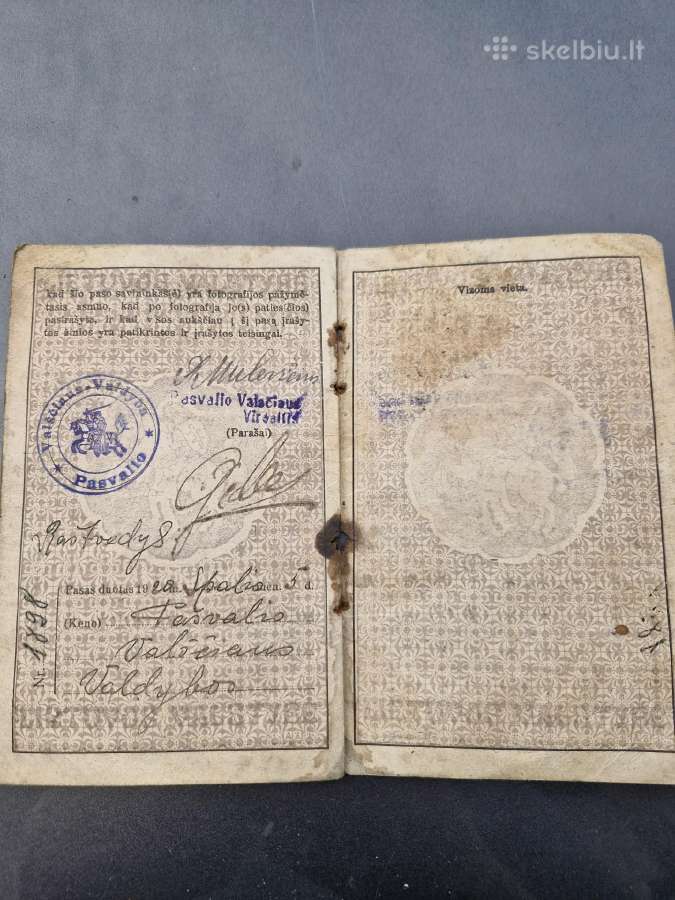 skelbiu.lt
LIETUVOS VALSTYBĖ
kad šio paso savininkas(ė) yra fotografijos pažymė-
tasis asmuo, kad po fotografija jo(s) paties(čios)
pasirašyta, ir kad visos aukščiau į šį pasą įrašy-
tos žinios yra patikrintos ir įrašytos teisingai.
Valsčiaus Valdyba
Pasvalio
Pasvalio Valsčiaus
Viršaitis
(Parašai)
Raštvedys:
Pasas duotas 1920 m. Spalio mėn. 5 d.
(Keno) Pasvalio
Valsčiaus
Valdybos
Nr. 1898
LIETUVOS VALSTYBĖ
Vizoms vieta.
LIETUVOS VALSTYBĖ